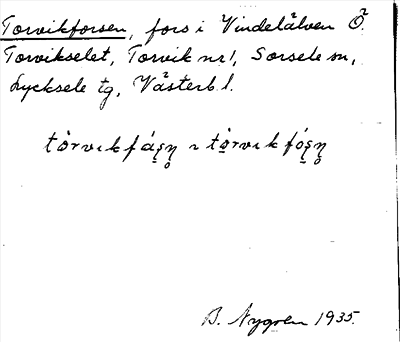 Torvikforsen, fors i Vindelälven Ö.
Torvikselet, Torvik nr 1, Sorsele sn,
Lycksele tg, Västerb. l.
tòrvikfáʂŋ̥ ~ tòrvikfóʂŋ̥
B. Nygren 1935.